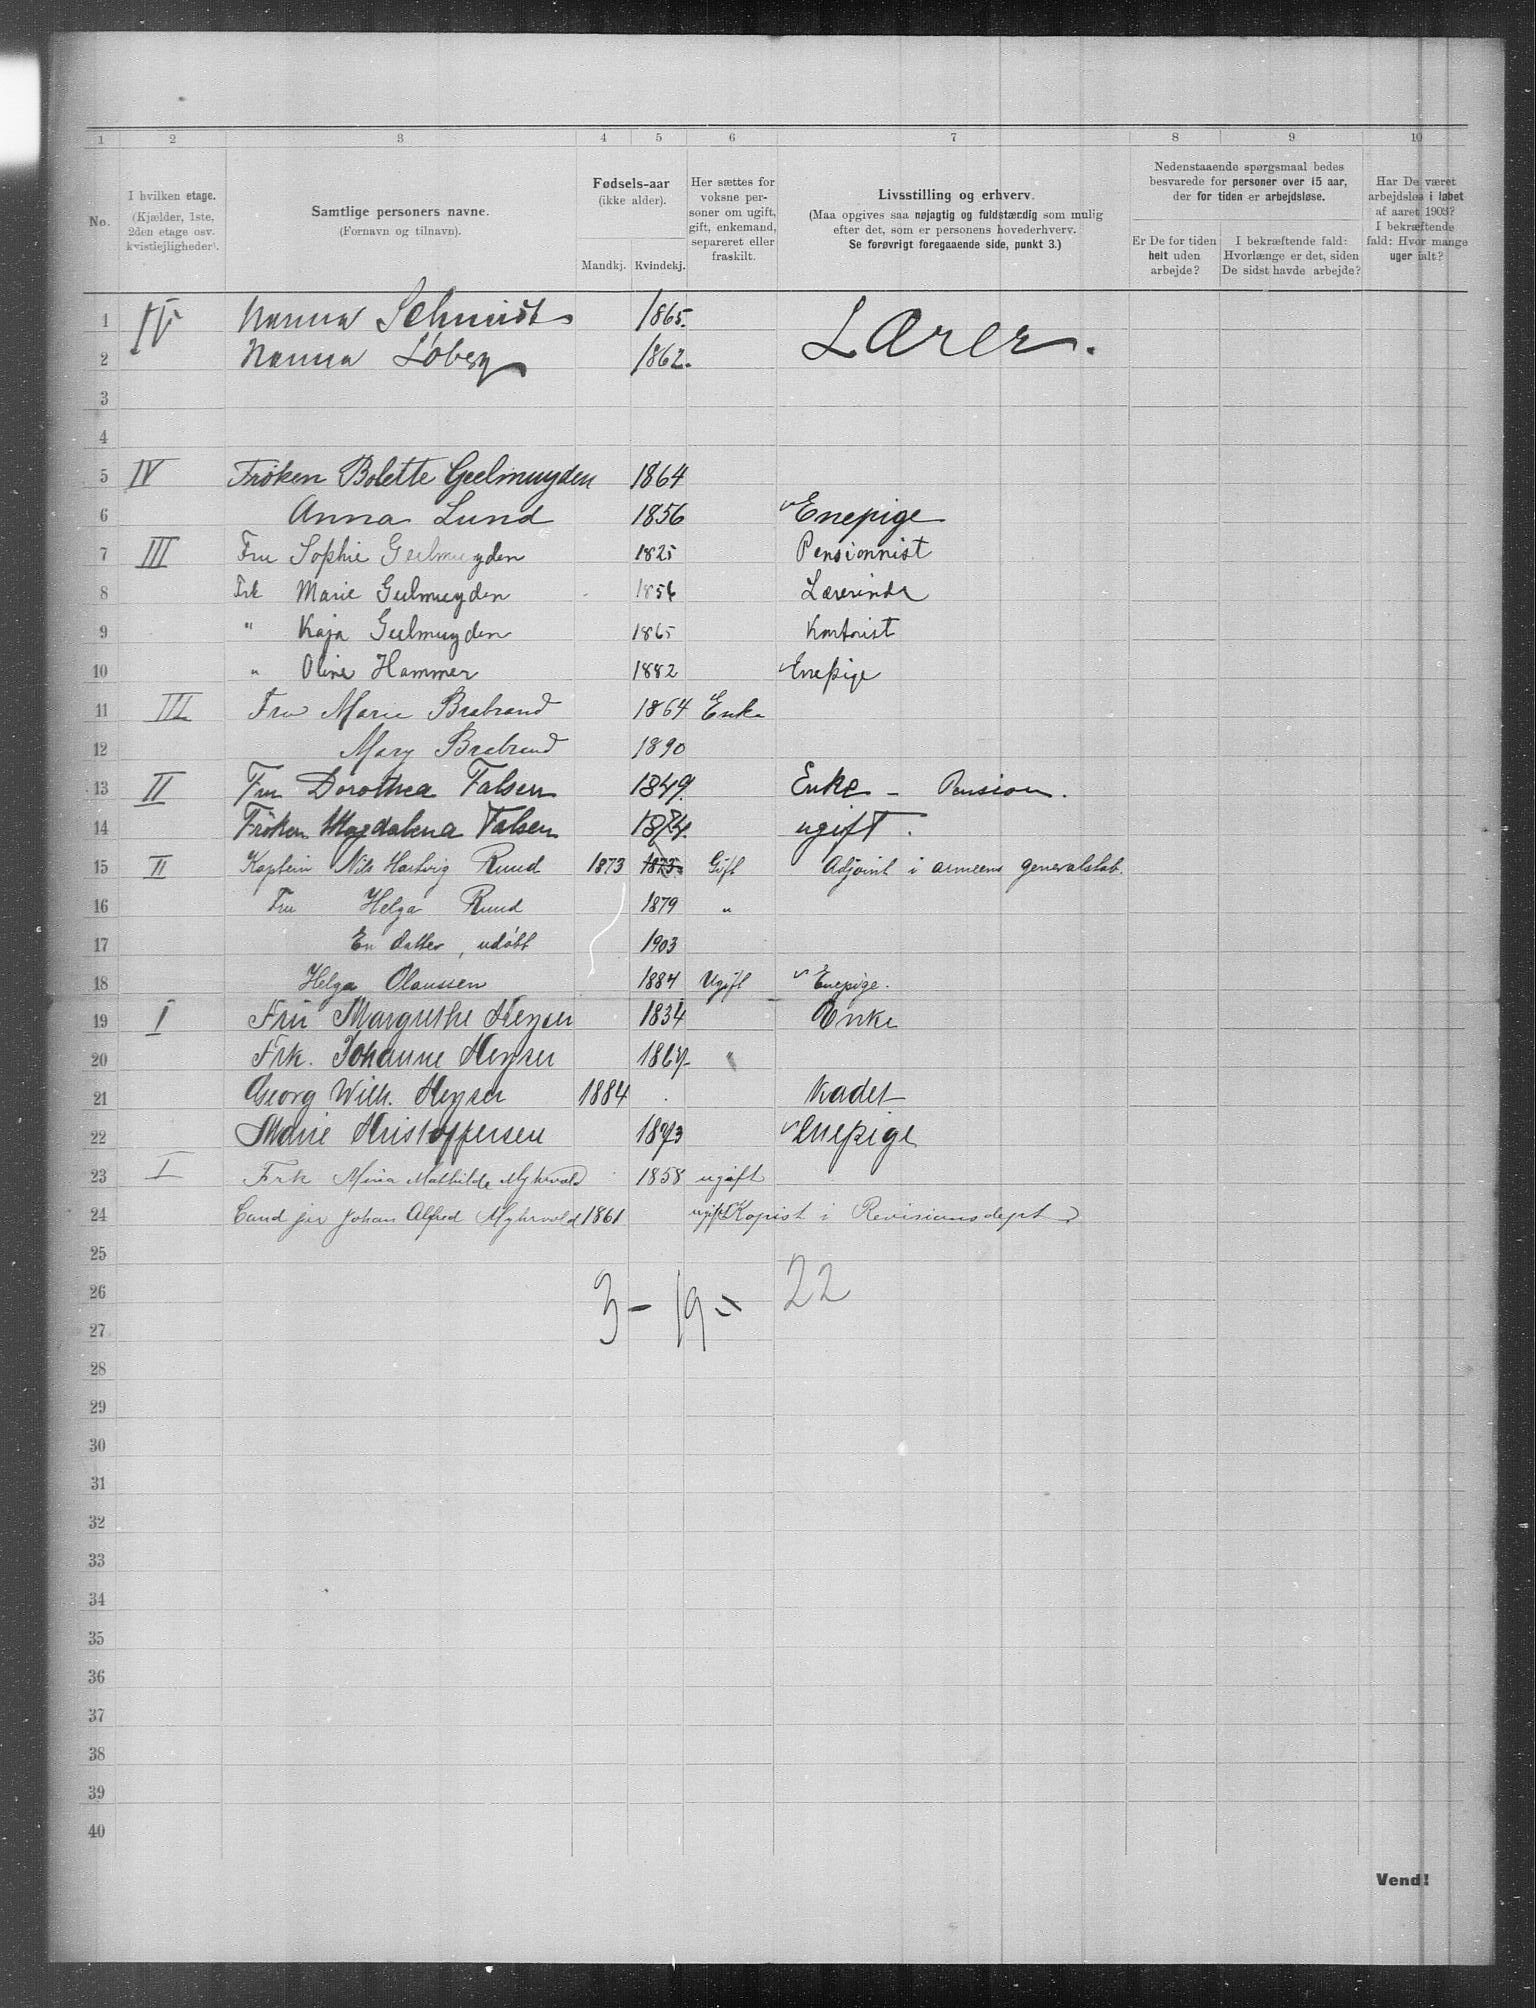 1 2 3 4 5 6 7 8 9 10
No.
I hvilken etage.
(Kjælder, 1ste, 2den etage osv. kvistlejligheder).
Samtlige personers navne.
(Fornavn og tilnavn).
Fødsels-aar
(ikke alder).
Mandkj. Kvindekj.
Her sættes for voksne personer om ugift, gift, enkemand, separeret eller fraskilt.
Livsstilling og erhverv.
(Maa opgives saa nøjagtig og fuldstærdig som mulig
efter det, som er personens hovederhverv.
Se forøvrigt foregaaende side, punkt 3.)
Nedenstaaende spørgsmaal bedes
besvarede for personer over 15 aar,
der for tiden er arbejdsløse.
Er De for tiden helt uden arbejde?
I bekræftende fald: Hvorlænge er det, siden De sidst havde arbejde?
Har De været arbejdsløs i løbet af aaret 1903? I bekræftende fald: Hvor mange uger ialt?
1 IV Nanna Schmidt 1865. Lærer.
2 Nanna Løberg 1862.
3
4
5 IV Frøken Bolette Geelmuyden 1864
6 Anna Lund 1856 Enepige
7 III Fru Sophie Geelmuyden 1825 Pensionnist
8 Frk Marie Geelmuyden 1856 Lærerinde
9 " Kaja Geelmuyden 1865 Kontorist
10 " Oline Hammer 1882 Enepige
11 III Fru Marie Brabrand 1864 Enke
12 Mary Brabrand 1890
13 II Fru Dorothea Falsen 1849. Enke – Pension.
14 Frøken Magdalena Falsen 1874. ugift.
15 II Kaptein Nils Hartvig Ruud 1873 1873 Gift Adjoint i armeens generalstab.
16 Fru Helga Ruud 1879 "
17 En datter, udøbt 1903
18 Helga Olaussen 1884 Ugift Enepige.
19 I Fru Margrethe Heyser 1834 Enke
20 Frk. Johanne Heyser 1867 "
21 Georg Wilh. Heyser 1884 Kadet
22 Marie Kristoffersen 1873 Enepige
23 I Frk Mina Mathilde Myhrvold 1858 ugift
24 Cand jur Johan Alfred Myhrvold 1861 ugift Kopist i Revisionsdept
25
26 3 – 19 = 22
27
28
29
30
31
32
33
34
35
36
37
38
39
40
Vend!